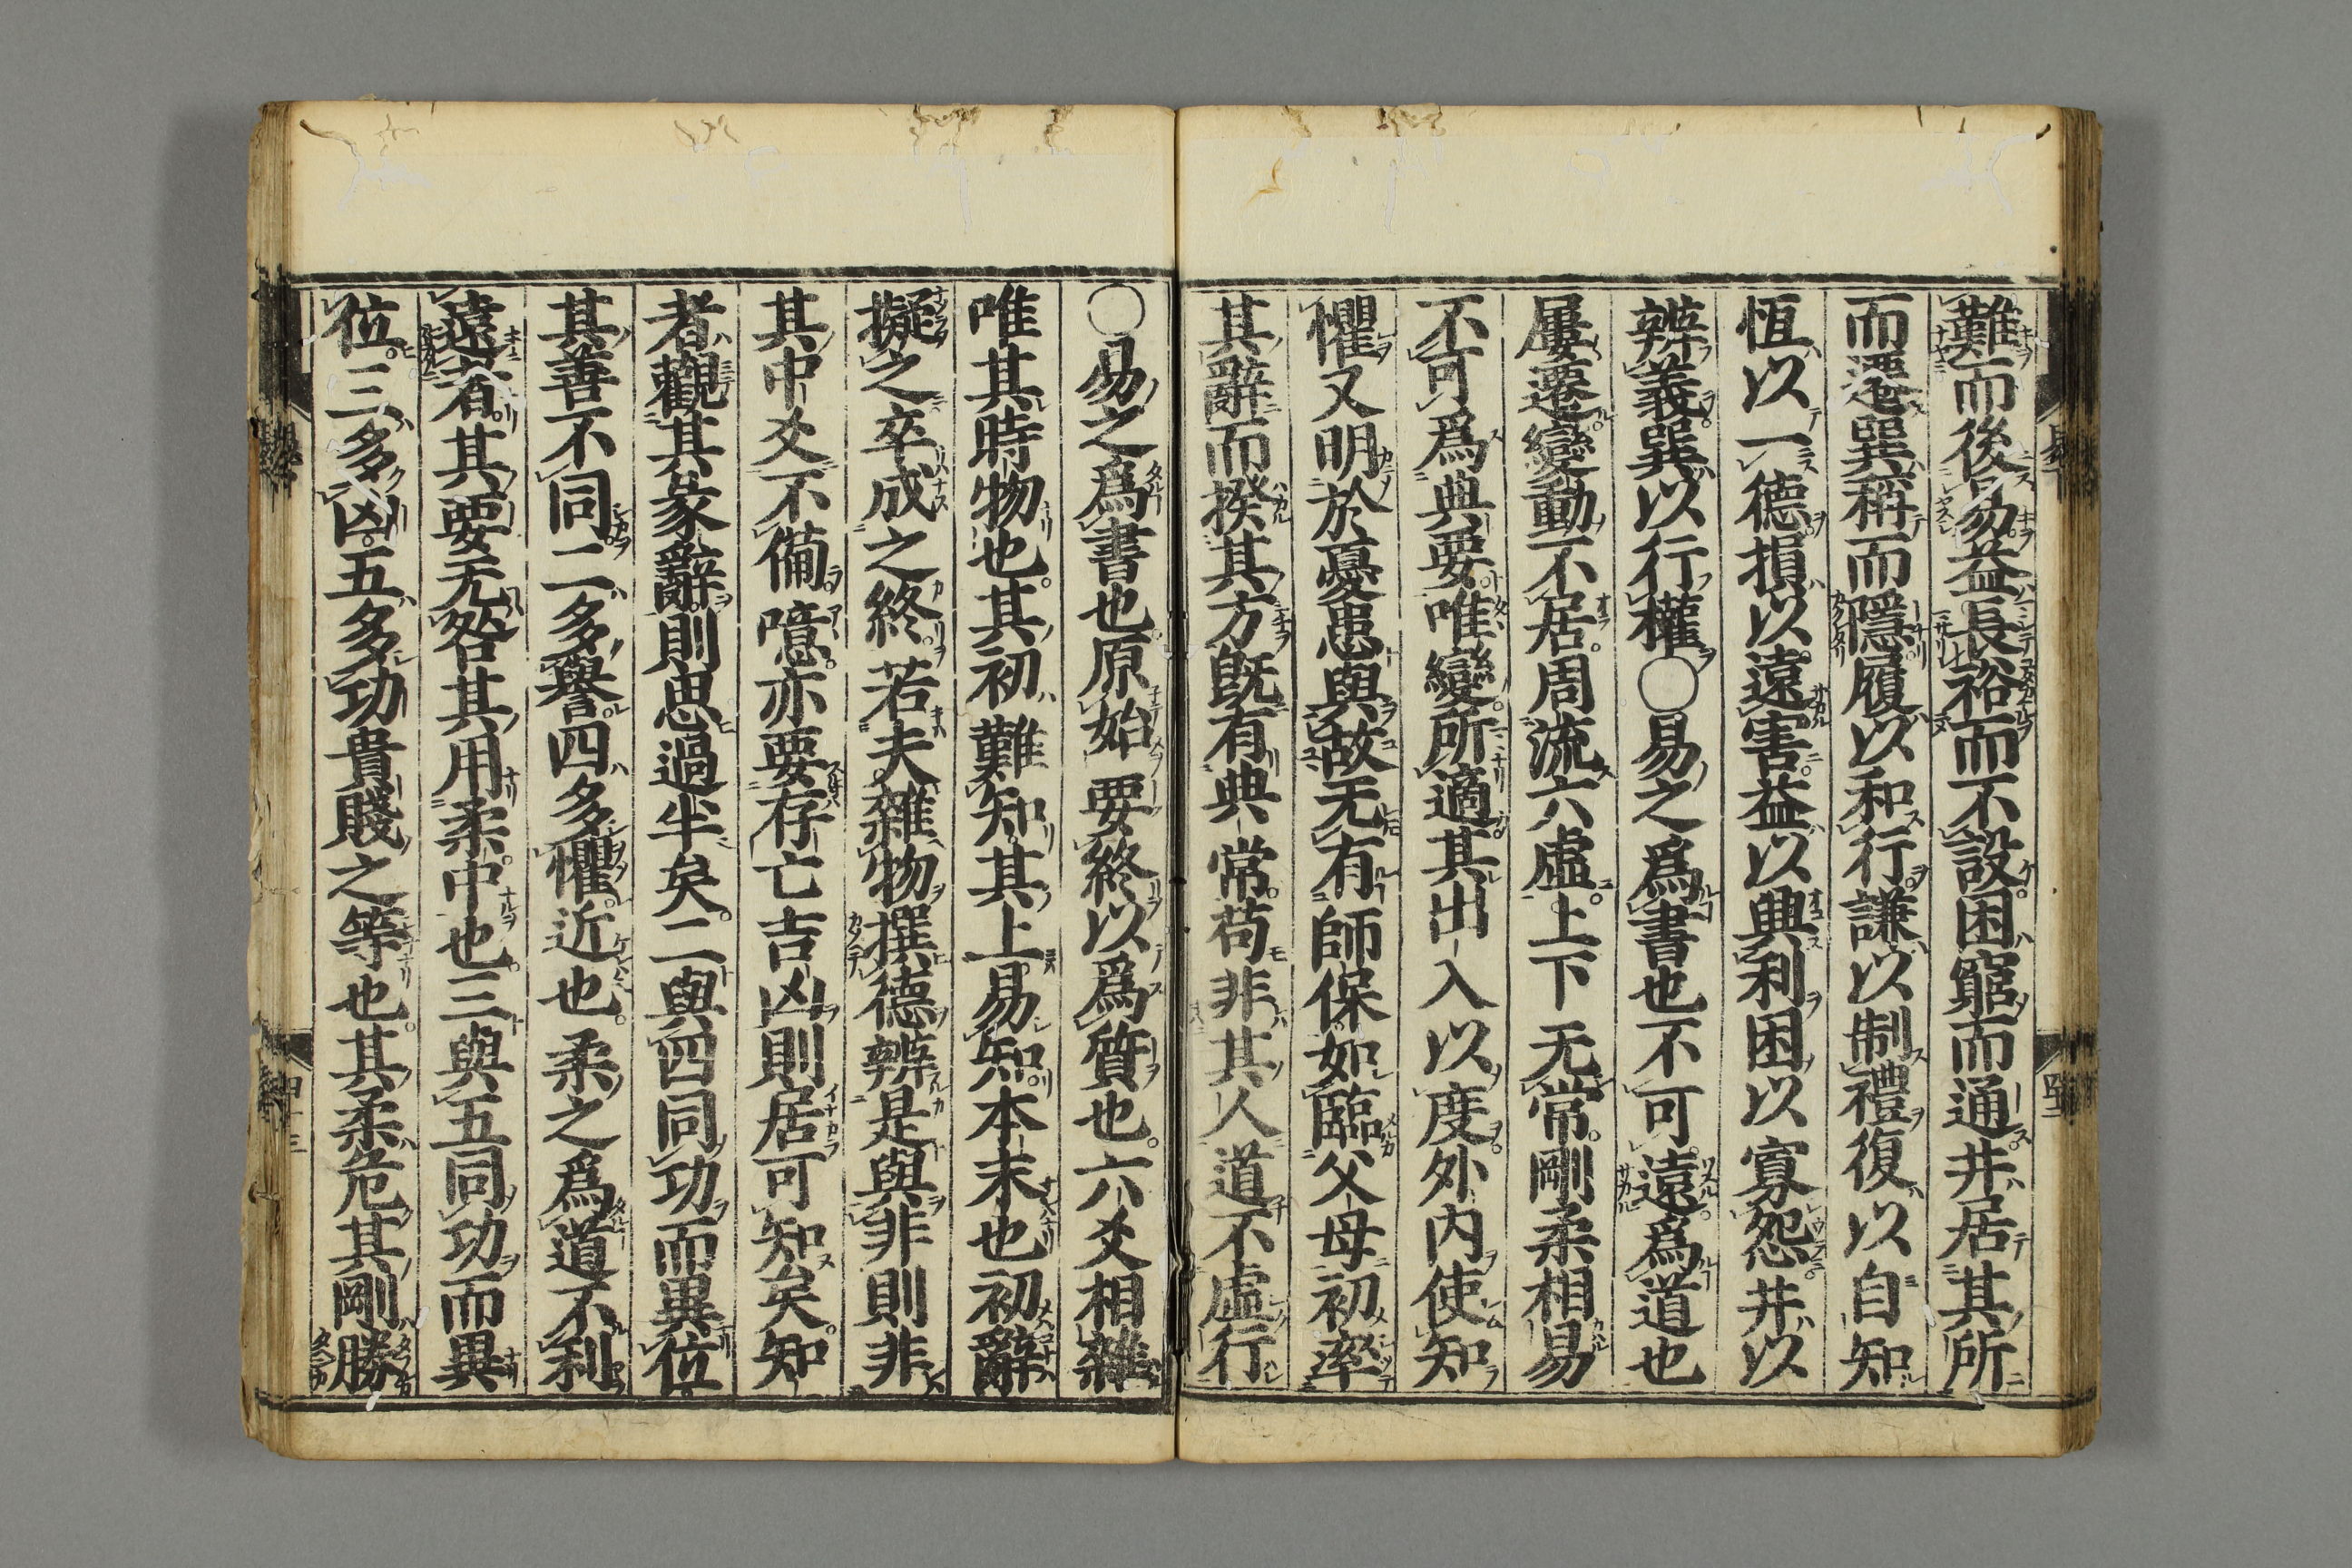 難而後易益長裕而不設困窮而通井居其所
而遷巽稱而隱履以和行謙以制禮復以自知
恆以一德損以遠害益以興利困以寡怨井以
辨義巽以行權○易之爲書也不可遠爲道也
屢遷變動不居周流六虛上下无常剛柔相易
不可爲典要唯變所適其出入以度外内使知
懼又明於憂患與故无有師保如臨父母初率
其辭而揆其方既有典常苟非其人道不虛行
○易之爲書也原始要終以爲質也六爻相雜
唯其時物也其初難知其上易知本末也初辭
擬之卒成之終若夫雜物撰德辨是與非則非
其中爻不備噫亦要存亡吉凶則居可知矣知
者觀其彖辭則思過半矣二與四同功而異位
其善不同二多譽四多懼近也柔之爲道不利
遠者其要无咎其用柔中也三與五同功而異
位三多凶五多功貴賤之等也其柔危其剛勝